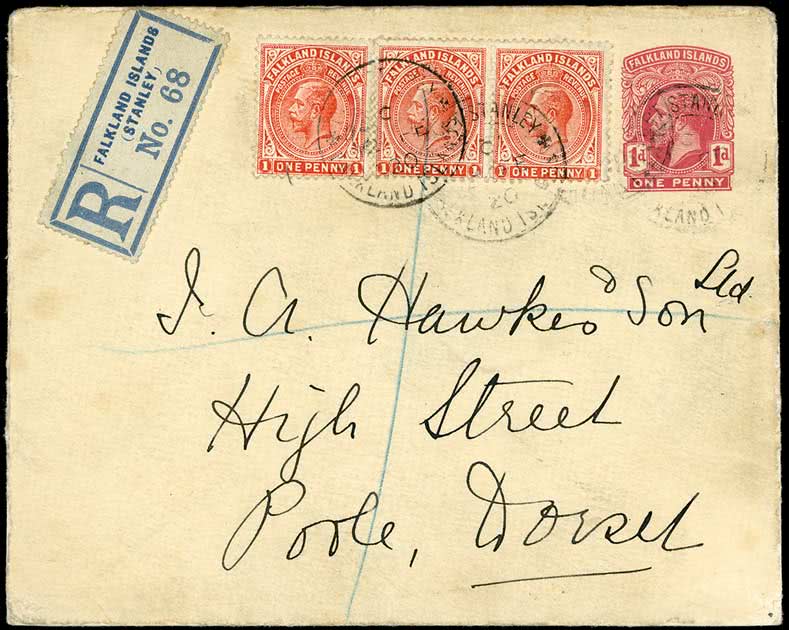 R
FALKLAND ISLANDS
(STANLEY)
No. 68
FALKLAND ISLANDS
POSTAGE REVENUE
1 ONE PENNY 1
FALKLAND ISLANDS
POSTAGE REVENUE
1 ONE PENNY 1
FALKLAND ISLANDS
POSTAGE REVENUE
1 ONE PENNY 1
FALKLAND ISLANDS
1d 1d
ONE PENNY
STANLEY
20
J. A. Hawkes & Son Ltd
High Street
Poole, Dorset